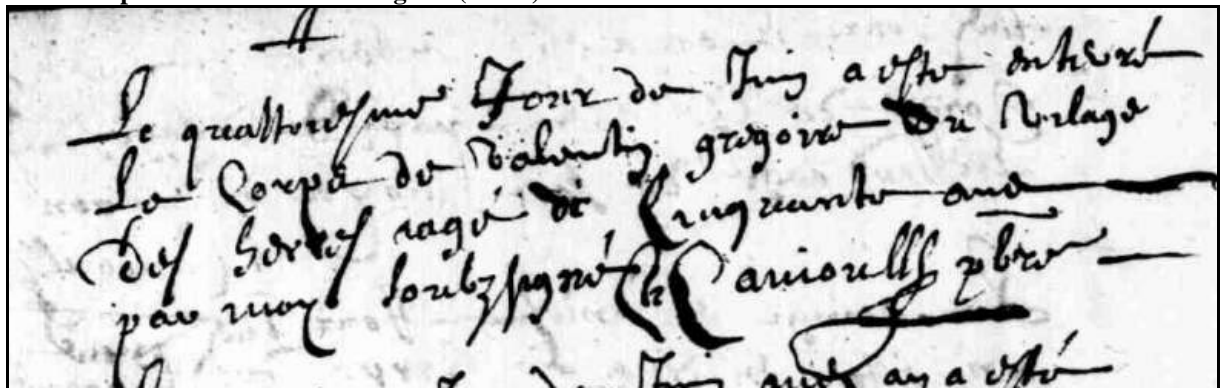 Le quattoresme Jour de Juin a esté enterré
Le Corps de Valentin gregoire du Vilage
Des herves aagé de Cinquante ans
par moy soubzsigné pbre
Juin an a esté